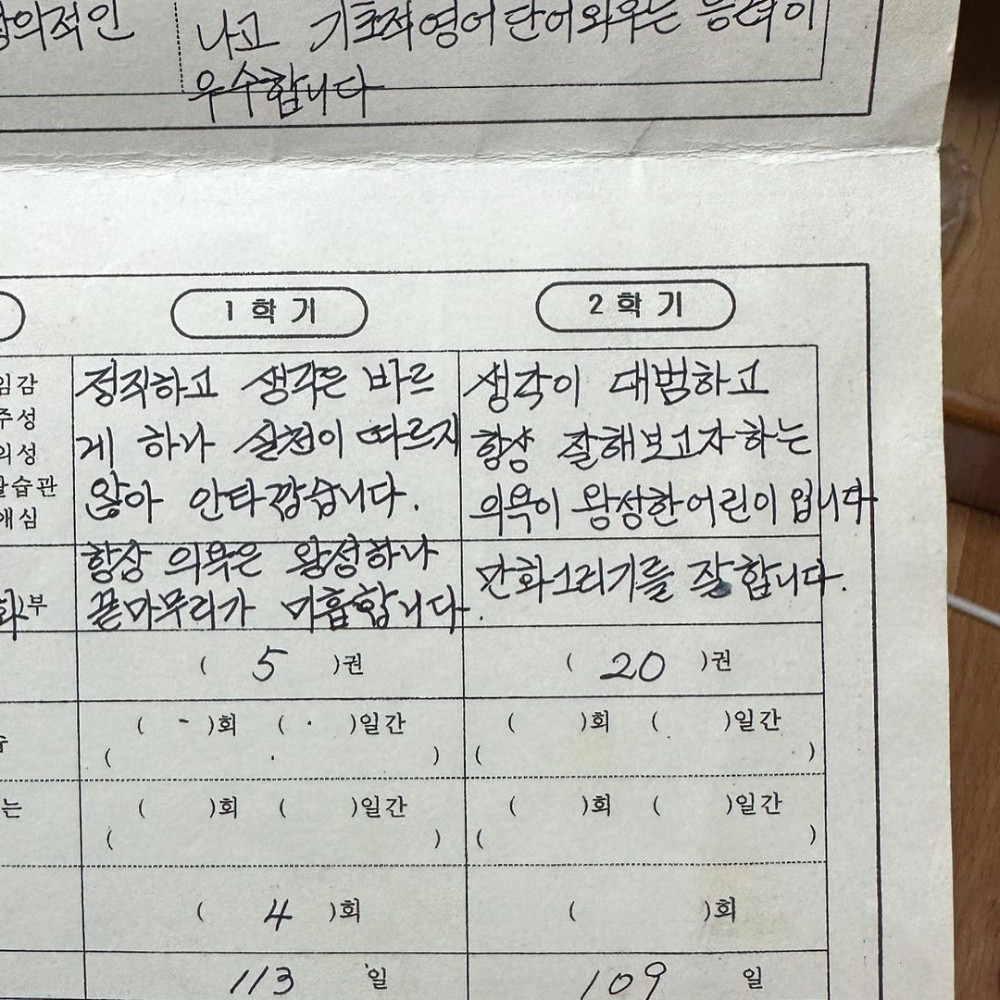 창의적인 나고 기초적영어단어외우는 능력이
우수합니다
1 학 기 2 학 기
임감 정직하고 생각은 바르 생각이 대범하고
주성 게 하나 실천이 따르지 항상 잘해보고자하는
의성 않아 안타깝습니다. 의욕이 왕성한어린이 입니다
활습관
애심
항상 의욕은 왕성하나 만화그리기를 잘합니다.
부 끝마무리가 미흡합니다.
( 5 )권 ( 20 )권
( - )회 ( · )일간 ( )회 ( )일간
( ) ( )
는 ( )회 ( )일간 ( )회 ( )일간
( ) ( )
( 4 )회 ( )회
113 일 109 일